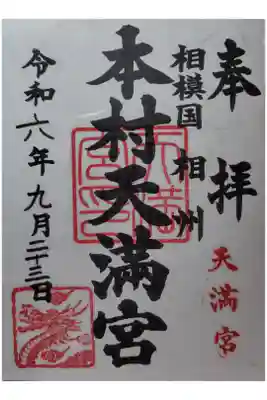 奉拝
天満宮
相模国 相州
本村天満宮
令和六年九月二十三日